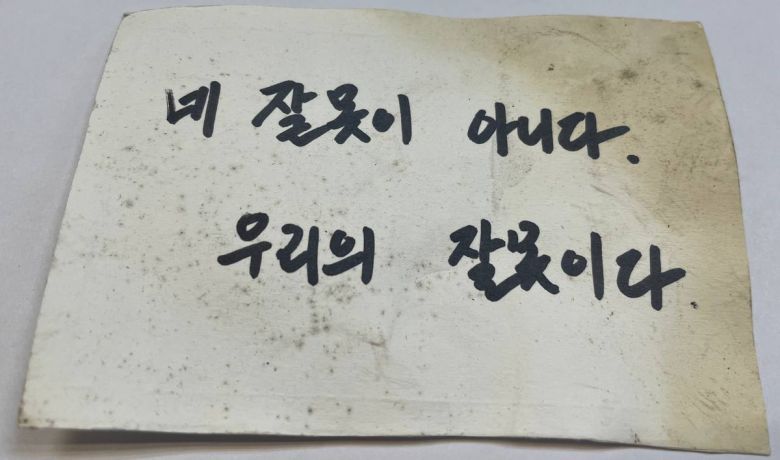 네 잘못이 아니다.
우리의 잘못이다